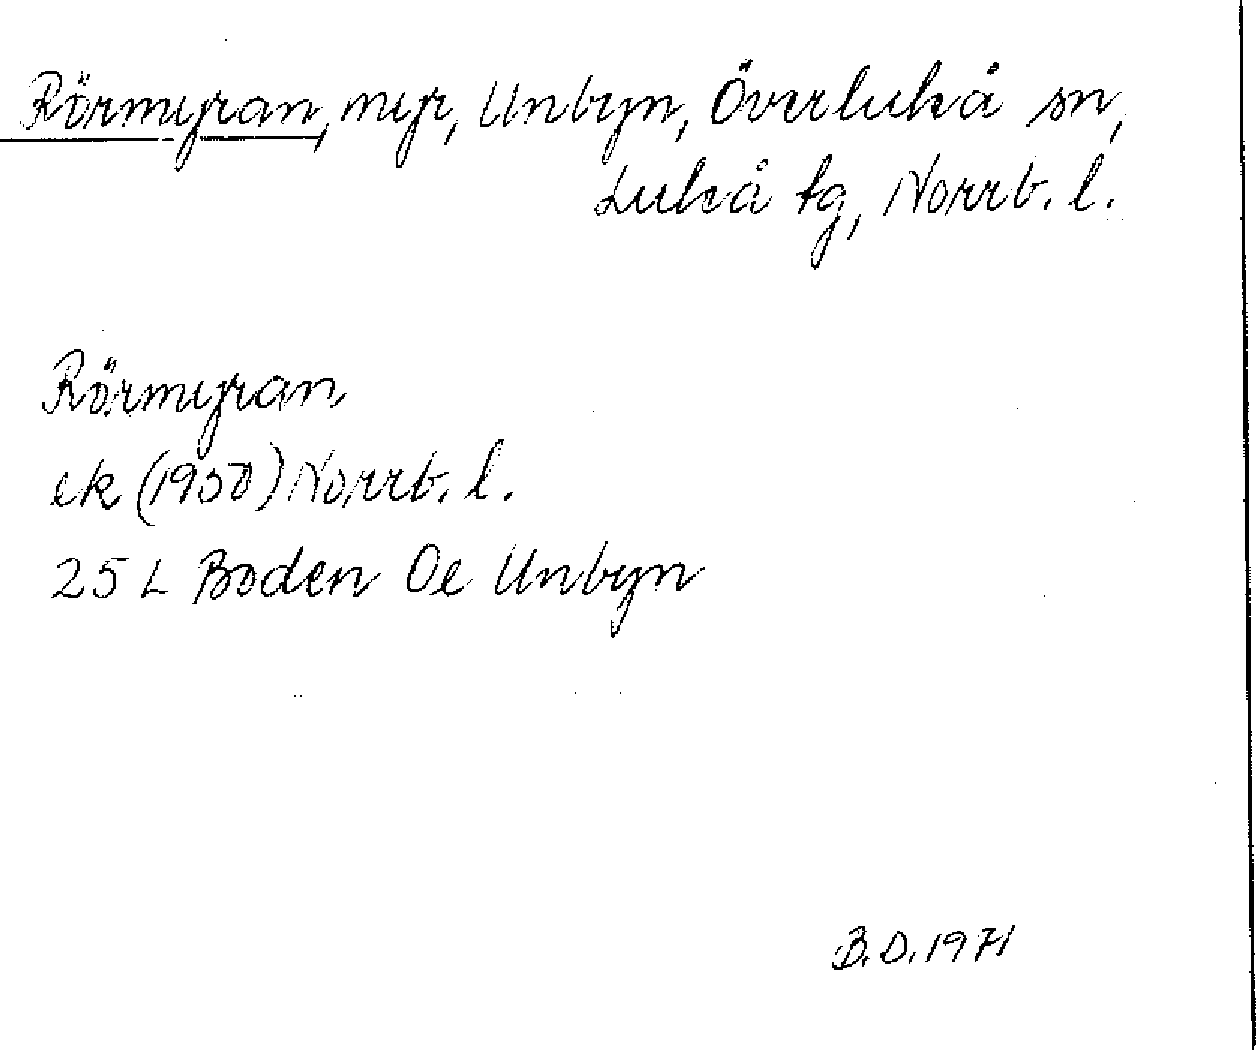 Rörmyran, myr, Unbyn, Överluleå sn,
Luleå tg, Norrb. l.
Rörmyran
ek (1950) Norrb. l.
25 L Boden Oe Unbyn
B.D. 1971